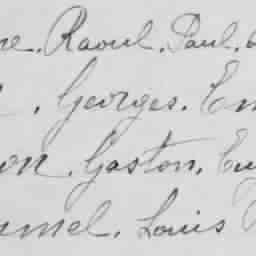 Raoul, Paul,
, Georges. Em
on, Gaston, Eu
mel, Louis